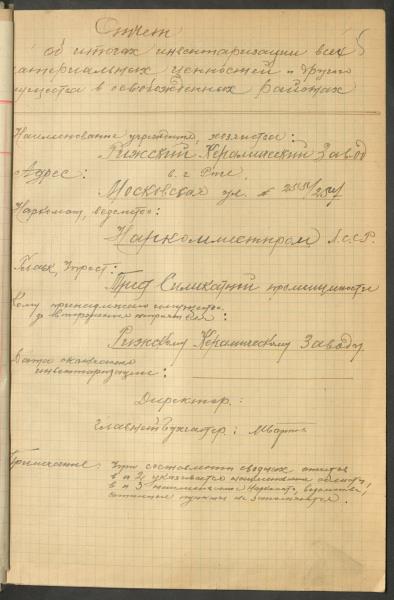 Отчет 5
об итогах инвентаризации всех
материальных ценностей и другого
имущества в освобожденных районах
Наименование учреждения, хозяйства:
Рижский Керамический Завод
Адрес: в г. Риге.
Московская ул. №
Наркомат, ведомство:
Наркомместпром Л.С.С.Р.
Главк, трест:
Трест Силикатной промышленности
Кому принадлежало имущество
до вторжения :
Рижскому Керамическому Заводу
Дата окончания
инвентаризации:
Директор:
Главный бухгалтер:
Примечание: При составлении сводных отчетов
в п 2 указывается наименование
в п 3 наименование Наркомата, ведомства,
остальные пункты не заполняются.